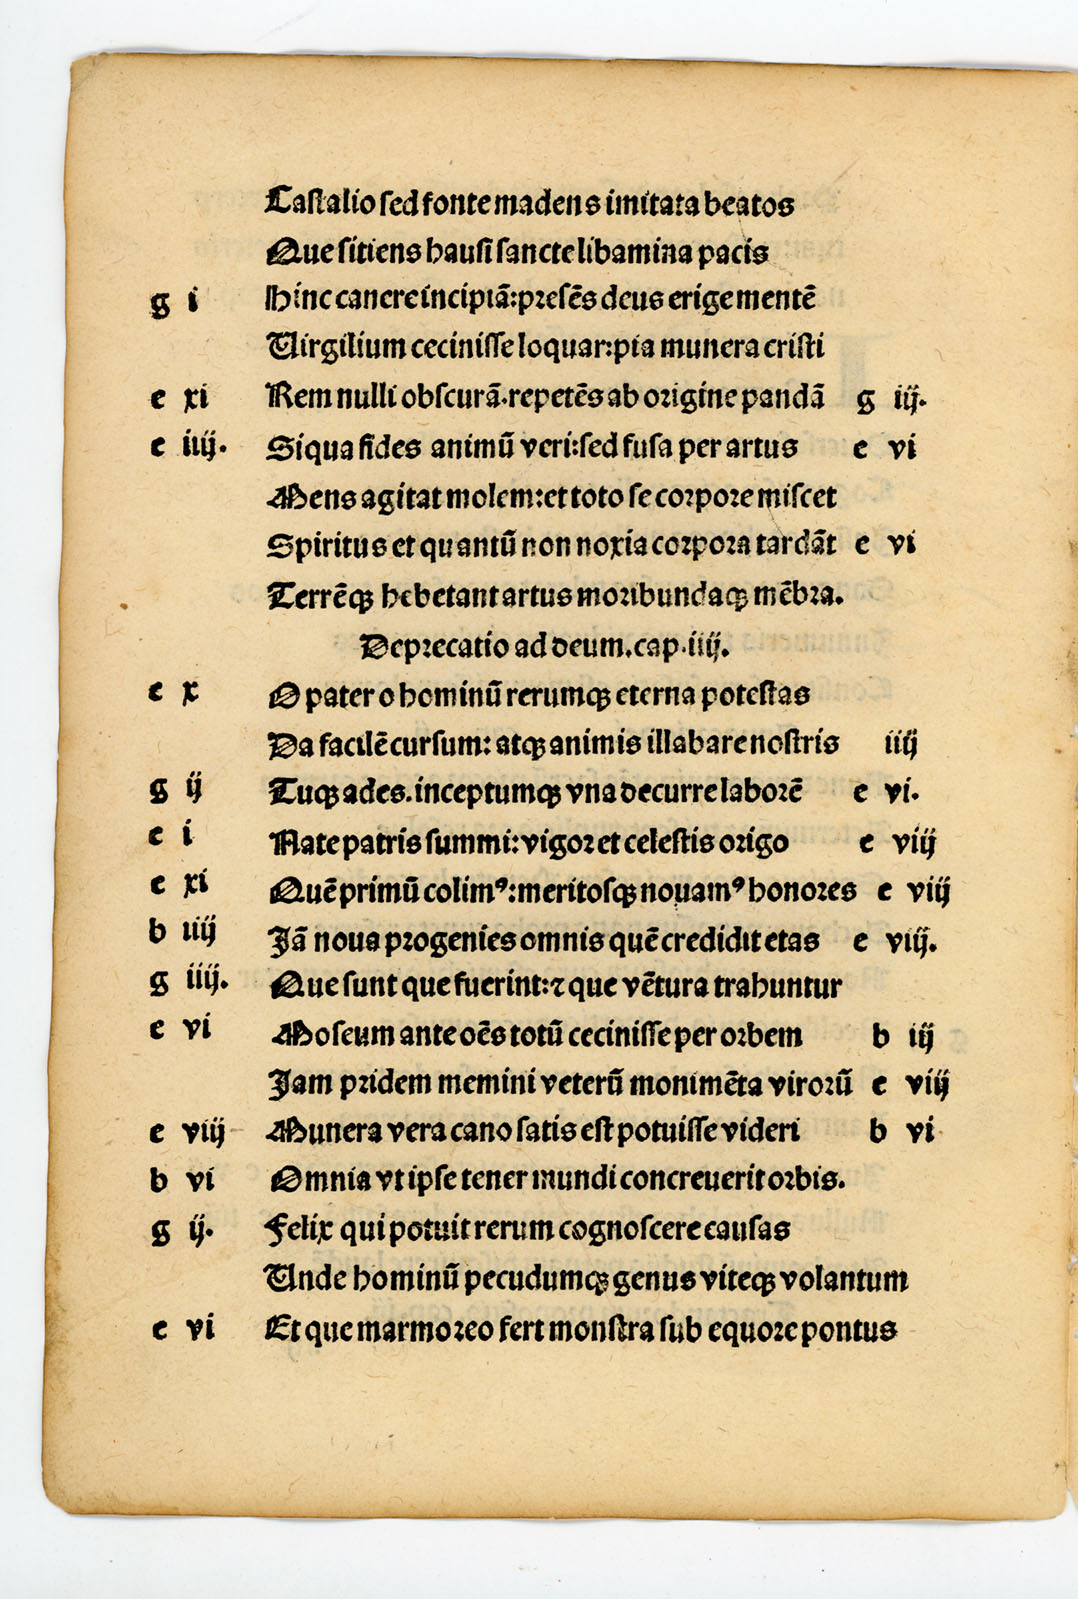 Castalio sed fonte madens imitata beatos
Que sitiens hausi sancte libamina pacis
g i Hinc canere incipiā: presēs deus erige mentē
Virgilium cecinisse loquar: pia munera cristi
e xi Rem nulli obscurā. repetēs ab origine pandā g iij.
e iiij. Siqua fides animū veri: sed fusa per artus e vi
Mens agitat molem: et toto se corpore miscet
Spiritus et quantū non noxia corpora tardāt e vi
Terrēqꝫ hebetant artus moribundaqꝫ mēbra.
Deprecatio ad deum. cap. iiij.
e x O pater o hominū rerumqꝫ eterna potestas
Da facilē cursum: atqꝫ animis illabare nostris iiij
g ij Tuqꝫ ades. inceptumqꝫ vna decurre laborē e vi.
e i Nate patris summi: vigor et celestis origo e viij
e xi Quē primū colimꝰ: meritosqꝫ nouamꝰ honores e viij
b iiij Jā noua progenies omnis quē credidit etas e viij.
g iiij. Que sunt que fuerint: ⁊ que vētura trahuntur
e vi Moseum ante oēs totū cecinisse per orbem b iij
Jam pridem memini veterū monimēta virorū e viij
e viij Munera vera cano satis est potuisse videri b vi
b vi Omnia vt ipse tener mundi concreuerit orbis.
g ij. Felix qui potuit rerum cognoscere causas
Unde hominū pecudumqꝫ genus viteqꝫ volantum
e vi Et que marmoreo fert monstra sub equore pontus